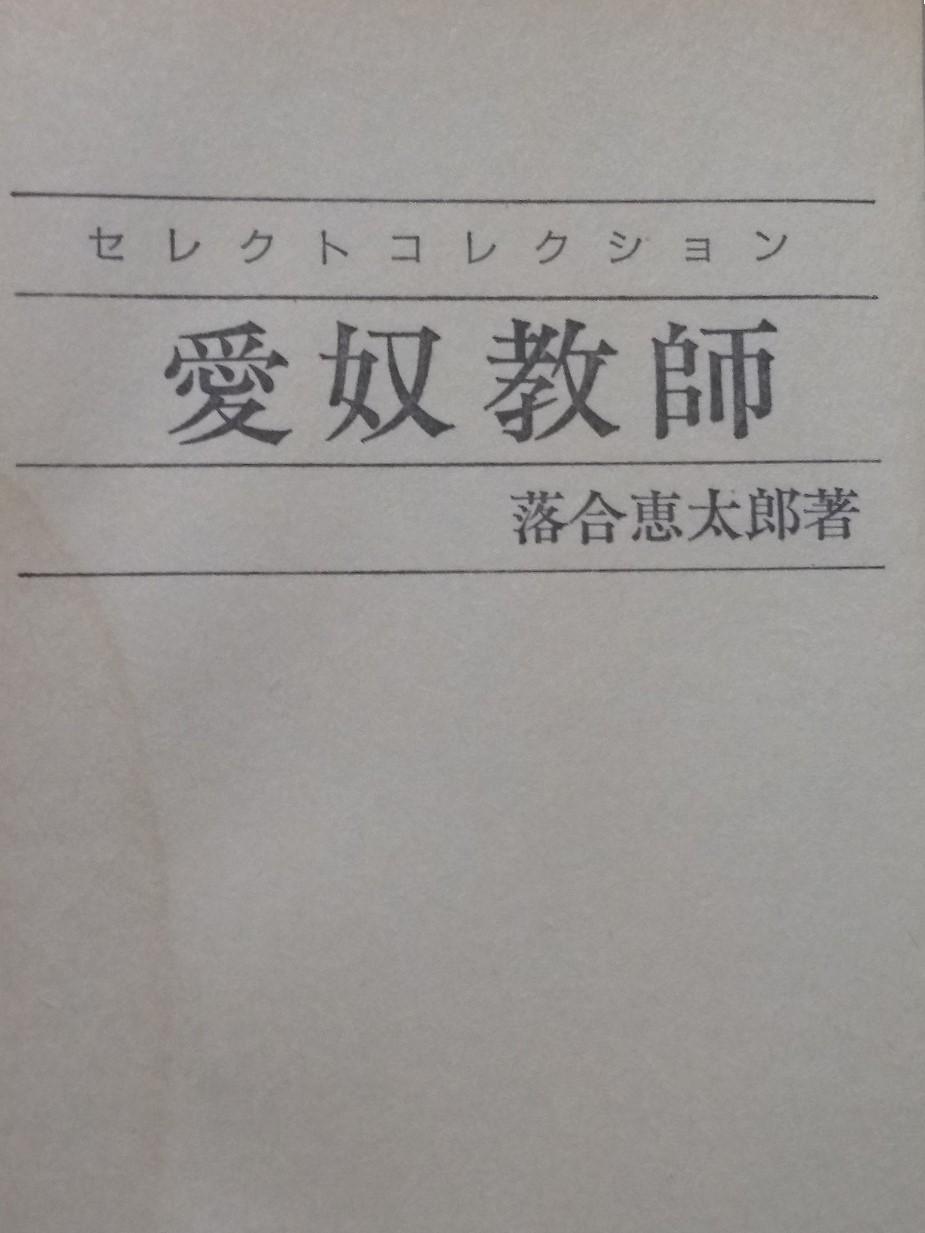 セレクトコレクション
愛奴教師
落合恵太郎著